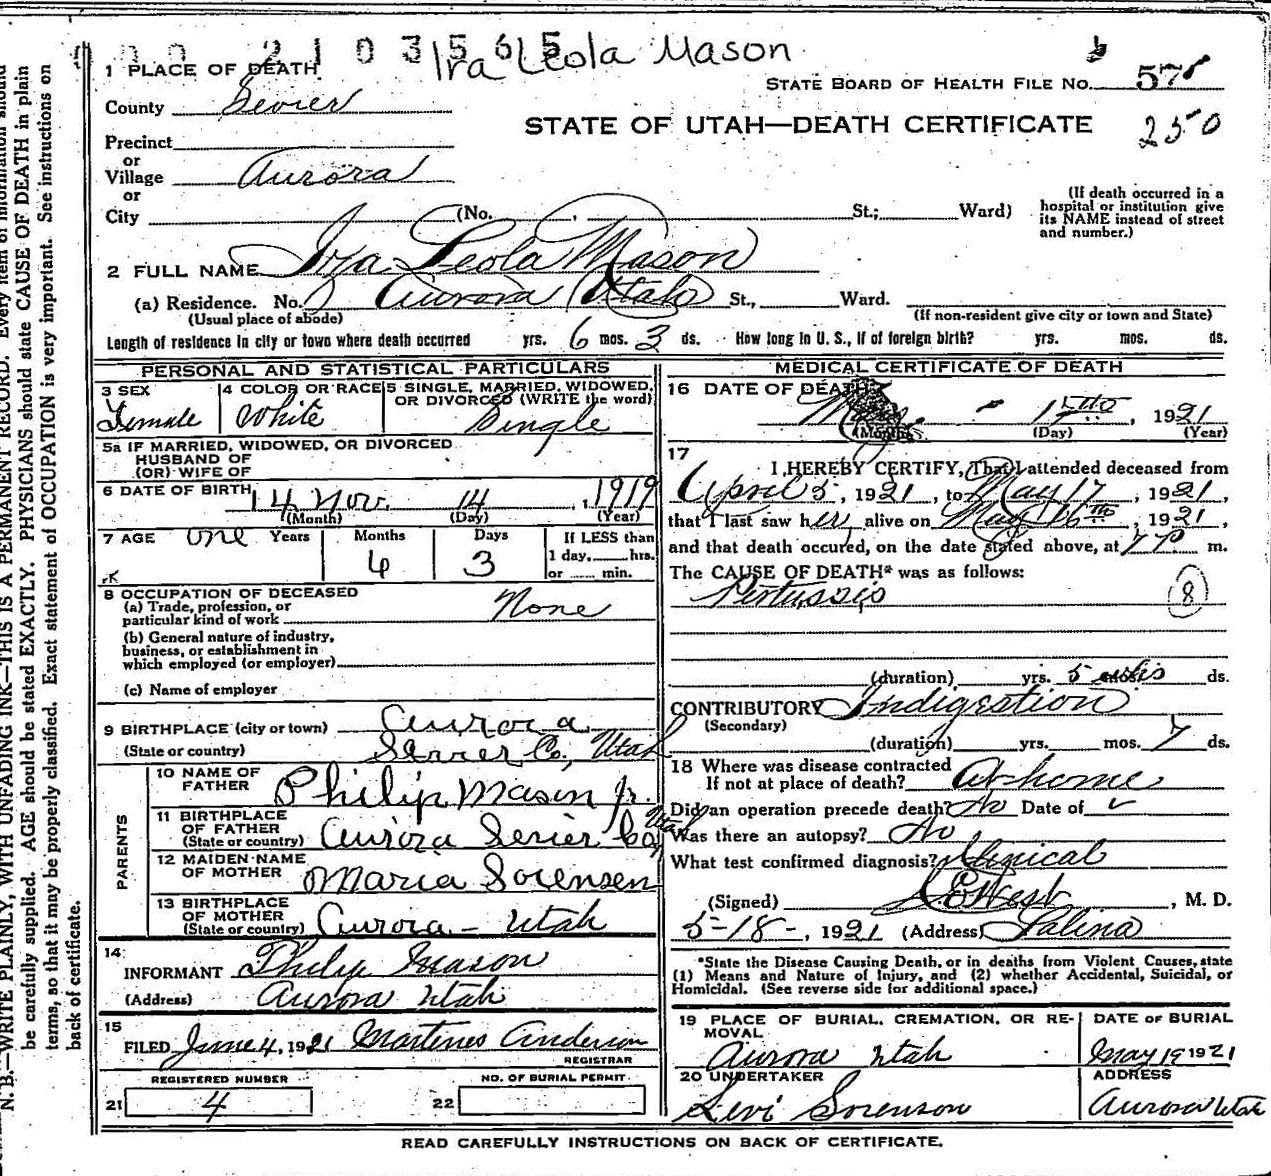 2103565 Ira Leola Mason
1 PLACE OF DEATH
STATE BOARD OF HEALTH FILE No. 57
County Sevier
STATE OF UTAH—DEATH CERTIFICATE 250
Precinct
or
Village Aurora
or
City (No. , St.; Ward)
(If death occurred in a hospital or institution give its NAME instead of street and number.)
2 FULL NAME Ira Leola Mason
(a) Residence. No. Aurora Utah St., Ward.
(Usual place of abode) (If non-resident give city or town and State)
Length of residence in city or town where death occurred yrs. 6 mos. 3 ds. How long in U. S., if of foreign birth? yrs. mos. ds.
PERSONAL AND STATISTICAL PARTICULARS
3 SEX Female
4 COLOR OR RACE White
5 SINGLE, MARRIED, WIDOWED, OR DIVORCED (WRITE the word) Single
5a IF MARRIED, WIDOWED, OR DIVORCED
HUSBAND OF
(OR) WIFE OF
6 DATE OF BIRTH 14 Nov. 14, 1919
(Month) (Day) (Year)
7 AGE one Years 6 Months 3 Days
If LESS than
1 day, hrs.
or min.
8 OCCUPATION OF DECEASED
(a) Trade, profession, or
particular kind of work None
(b) General nature of industry,
business, or establishment in
which employed (or employer)
(c) Name of employer
9 BIRTHPLACE (city or town) Aurora
(State or country) Sevier Co, Utah
PARENTS
10 NAME OF FATHER Philip Mason Jr.
11 BIRTHPLACE OF FATHER (State or country) Aurora Sevier Co, Utah
12 MAIDEN NAME OF MOTHER Maria Sorensen
13 BIRTHPLACE OF MOTHER (State or country) Aurora - Utah
14
INFORMANT Philip Mason
(Address) Aurora Utah
15
FILED June 4, 1921 Martines Anderson
REGISTRAR
REGISTERED NUMBER
21 4
NO. OF BURIAL PERMIT
22
MEDICAL CERTIFICATE OF DEATH
16 DATE OF DEATH
May - , 1921
(Month) (Day) (Year)
17
I HEREBY CERTIFY, That I attended deceased from
April 5, 1921, to May 17, 1921,
that I last saw her alive on May 16th, 1921,
and that death occured, on the date stated above, at 7 P m.
The CAUSE OF DEATH* was as follows:
Pertussis (8)
(duration) yrs. 5 wks ds.
CONTRIBUTORY Indigestion
(Secondary)
(duration) yrs. mos. 7 ds.
18 Where was disease contracted
If not at place of death? At home
Did an operation precede death? No Date of
Was there an autopsy? No
What test confirmed diagnosis? Clinical
(Signed) West, M. D.
5-18-, 1921 (Address) Salina
*State the Disease Causing Death, or in deaths from Violent Causes, state
(1) Means and Nature of Injury, and (2) whether Accidental, Suicidal, or
Homicidal. (See reverse side for additional space.)
19 PLACE OF BURIAL, CREMATION, OR REMOVAL
Aurora Utah
DATE OF BURIAL
May 19 1921
20 UNDERTAKER
Levi Sorenson
ADDRESS
Aurora Utah
READ CAREFULLY INSTRUCTIONS ON BACK OF CERTIFICATE.
N. B.—WRITE PLAINLY, WITH UNFADING INK—THIS IS A PERMANENT RECORD. Every item of information should
be carefully supplied. AGE should be stated EXACTLY. PHYSICIANS should state CAUSE OF DEATH in plain
terms, so that it may be properly classified. Exact statement of OCCUPATION is very important. See instructions on
back of certificate.